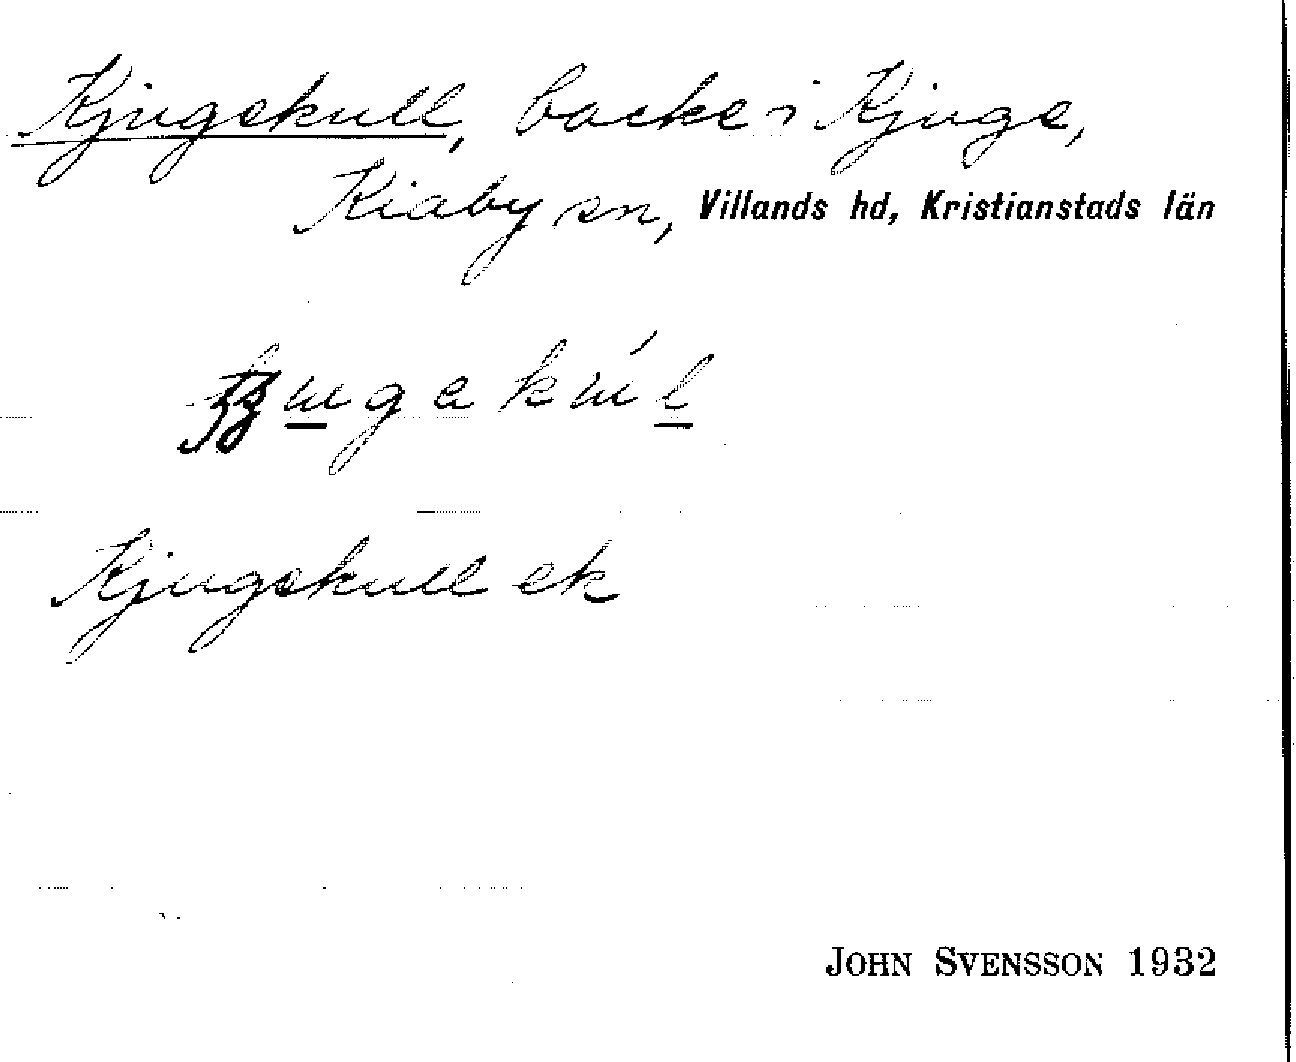 Kjugekull, backe i Kjuge,
Kiaby sn, Villands hd, Kristianstads län
Kjugekull ek
JOHN SVENSSON 1932